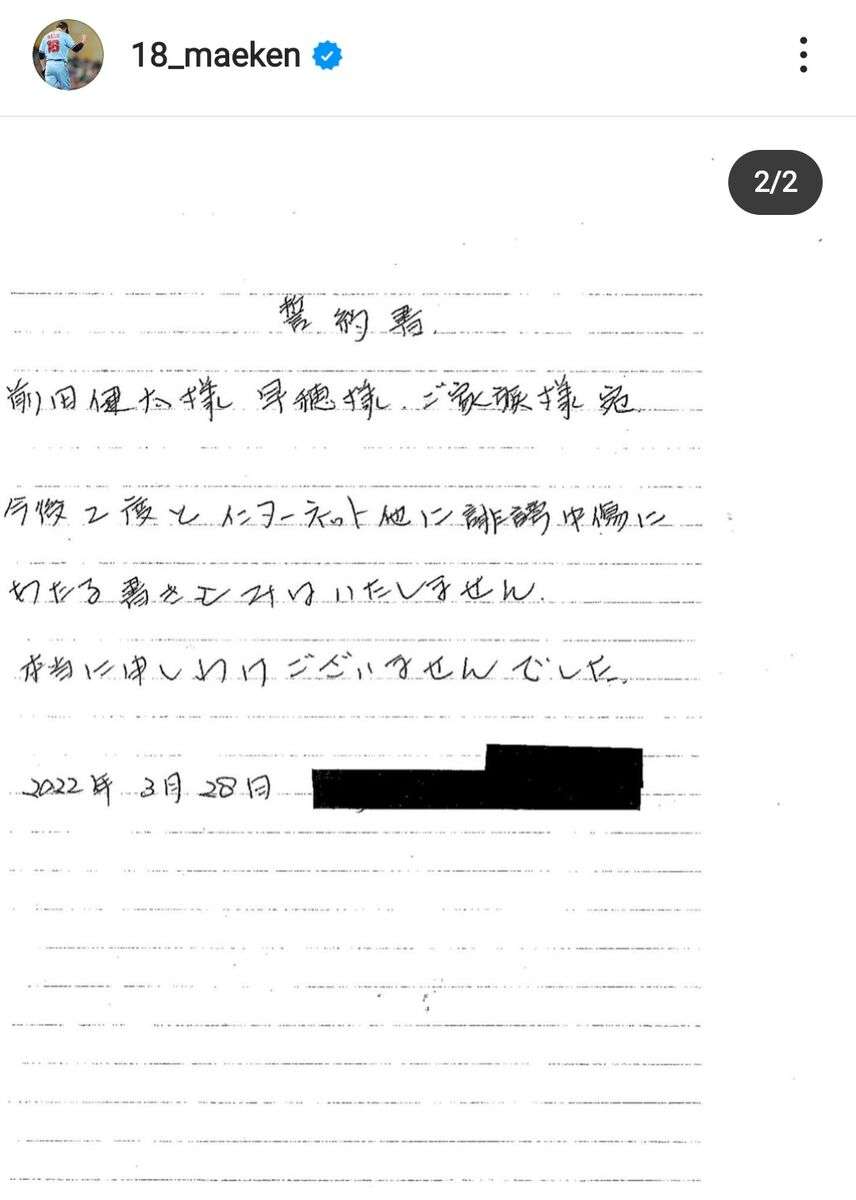 18_maeken
2/2
誓約書.
前田健太様 早穂様.ご家族様 宛
今後2度とインターネット他に誹謗中傷に
わたる書きこみはいたしません.
本当に申しわけございませんでした.
2022年 3月 28日